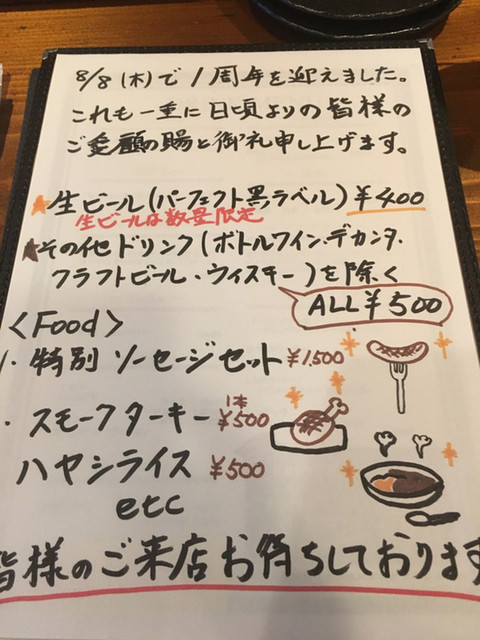 8/8(木)で1周年を迎えました。
これも一重に日頃よりの皆様の
ご愛顧の賜と御礼申し上げます。
★生ビール(パーフェクト黒ラベル)¥400
生ビールは数量限定
★その他ドリンク(ボトルワイン・デカンタ・
クラフトビール・ウィスキー)を除く
ALL¥500
<Food>
・特別ソーセージセット ¥1,500
・スモークターキー 1本 ¥500
ハヤシライス ¥500
etc
皆様のご来店お待ちしております